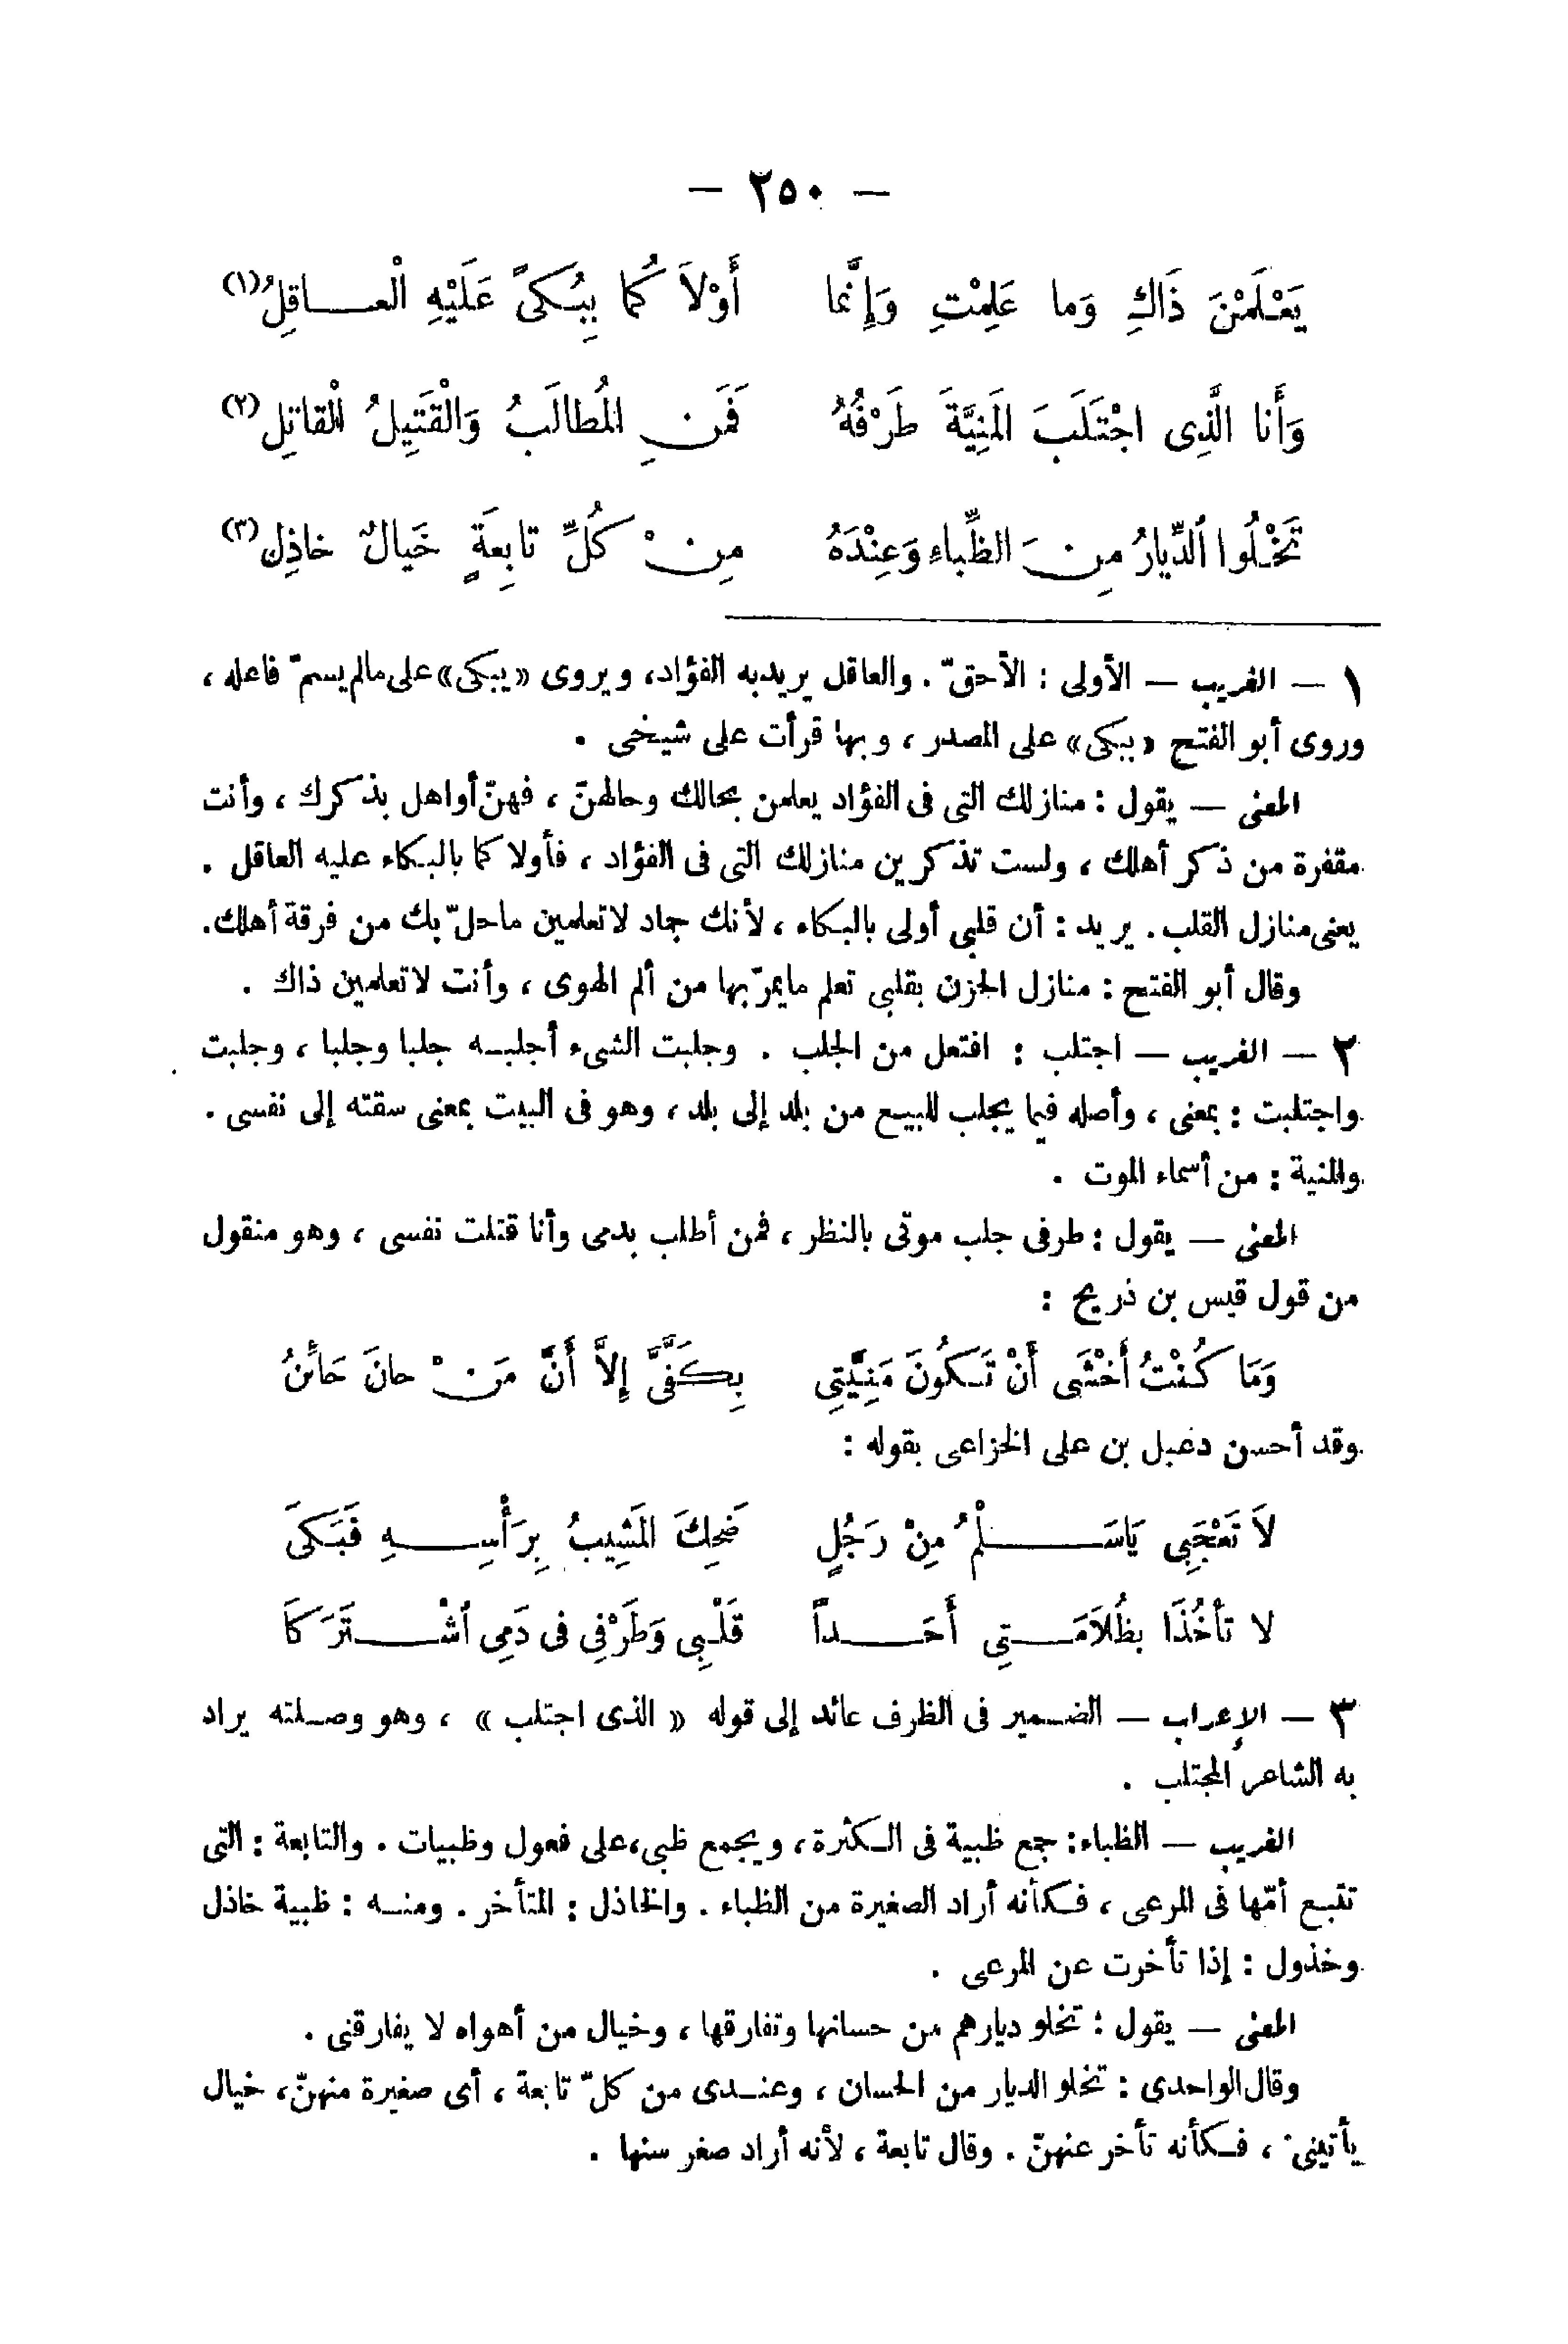 — ٢٥٠ —
يَعْلَمْنَ ذَاكِ وَما عَلِمْتِ وَإِنَّما أَوْلَاكُما بِبُكىً عَلَيْهِ الْعـــاقِلُ(١)
وَأَنا الَّذِى اجْتَلَبَ المَنِيَّةَ طَرْفُهُ فَمَنِ المُطالَبُ وَالْقَتِيلُ الْقاتِل(٢)
تَخْلُوا الدِّيارُ مِنَ الظِّباءِ وَعِنْدَهُ مِنْ كُلِّ تابِعَةٍ خَيالٌ خاذِل(٣)
١ — الغريب — الأولى : الأحقّ . والعاقل يريد به الفؤاد، ويروى «يبكى» على مالم يسمّ فاعله ،
وروى أبو الفتح «ببكى» على المصدر ، وبها قرأت على شيخى .
المعنى — يقول : منازلك التى فى الفؤاد يعلمن بحالك وحالهنّ ، فهنّ أواهل بذكرك ، وأنت
مقفرة من ذكر أهلك ، ولست تذكرين منازلك التى فى الفؤاد ، فأولاكما بالبكاء عليه العاقل .
يعنى منازل القلب . يريد : أن قلبى أولى بالبكاء ، لأنك جماد لا تعلمين ماحلّ بك من فرقة أهلك.
وقال أبو الفتح : منازل الحزن بقلبى تعلم مايمرّ بها من ألم الهوى ، وأنت لا تعلمين ذاك .
٢ — الغريب — اجتلب : افتعل من الجلب . وجلبت الشىء أجلبـه جلبا وجلبا ، وجلبت
واجتلبت : بمعنى ، وأصله فيما يجلب للبيع من بلد إلى بلد ، وهو فى البيت بمعنى سقته إلى نفسى .
والمنية : من أسماء الموت .
المعنى — يقول : طرفى جلب موتى بالنظر ، فمن أطلب بدمى وأنا قتلت نفسى ، وهو منقول
من قول قيس بن ذريح :
وَمَا كُنْتُ أَخْشَى أَنْ تَكُونَ مَنِيَّتِى بِكَفَّىَّ إِلاَّ أَنَّ مَنْ حانَ حَائنُ
وقد أحسن دعبل بن على الخزاعى بقوله :
لاَ تَعْجَبِى يَاسَـــلْمُ مِنْ رَجُلٍ ضَحِكَ المَشِيبُ بِرَأْسِـــهِ فَبَكىَ
لا تأْخُذَا بظُلاَمَـــتِى أَحَـــداً قَلْبِى وَطَرْفِى فى دَمِى اشْـــتَرَكَا
٣ — الإعراب — الضـمير فى الظرف عائد إلى قوله « الذى اجتلب » ، وهو وصـلته يراد
به الشاعر المجتلب .
الغريب — الظباء: جمع ظبية فى الكثرة، ويجمع ظبى، على فعول وظبيات . والتابعة : التى
تتبع أمّها فى المرعى ، فكأنه أراد الصغيرة من الظباء . والخاذل : المتأخر . ومنـه : ظبية خاذل
وخذول : إذا تأخرت عن المرعى .
المعنى — يقول : تخلو ديارهم من حسانها وتفارقها ، وخيال من أهواه لا يفارقنى .
وقال الواحدى : تخلو الديار من الحسان ، وعنـدى من كلّ تابعة ، أى صغيرة منهنّ، خيال
يأتينى ، فكأنه تأخر عنهنّ . وقال تابعة ، لأنه أراد صغر سنها .